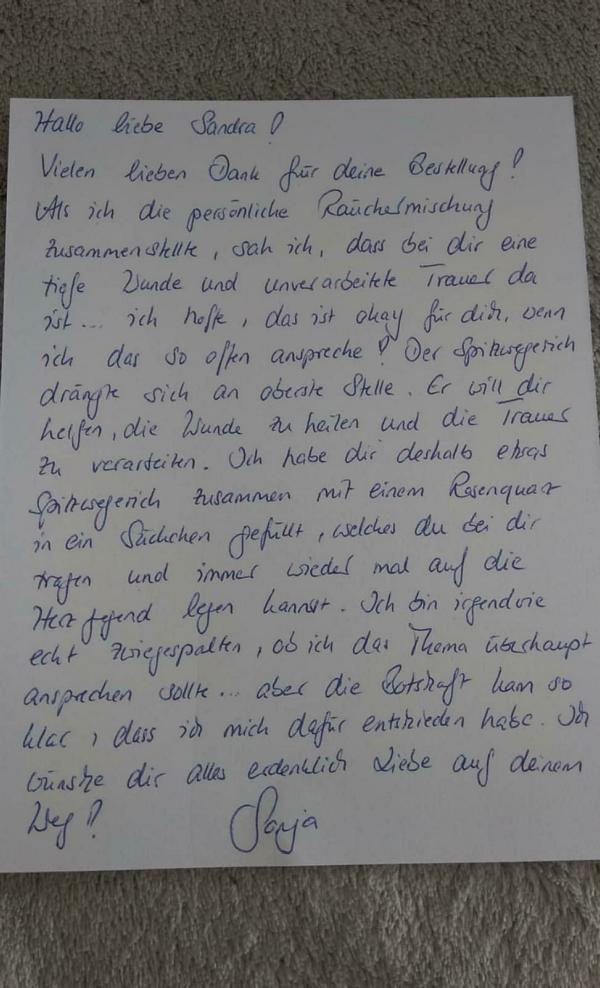 Hallo liebe Sandra!
Vielen lieben Dank für deine Bestellung!
Als ich die persönliche Räuchermischung
zusammenstellte, sah ich, dass bei dir eine
tiefe Wunde und unverarbeitete Trauer da
ist... ich hoffe, das ist okay für dich, wenn
ich das so offen anspreche! Der Spitzwegerich
drängte sich an oberste Stelle. Er will dir
helfen, die Wunde zu heilen und die Trauer
zu verarbeiten. Ich habe dir deshalb etwas
Spitzwegerich zusammen mit einem Rosenquarz
in ein Säckchen gefüllt, welches du bei dir
tragen und immer wieder mal auf die
Herzgegend legen kannst. Ich bin irgendwie
echt zwiegespalten, ob ich das Thema überhaupt
ansprechen sollte... aber die Botschaft kam so
klar, dass ich mich dafür entschieden habe. Ich
wünsche dir alles erdenklich Liebe auf deinem
Weg!
Sonja